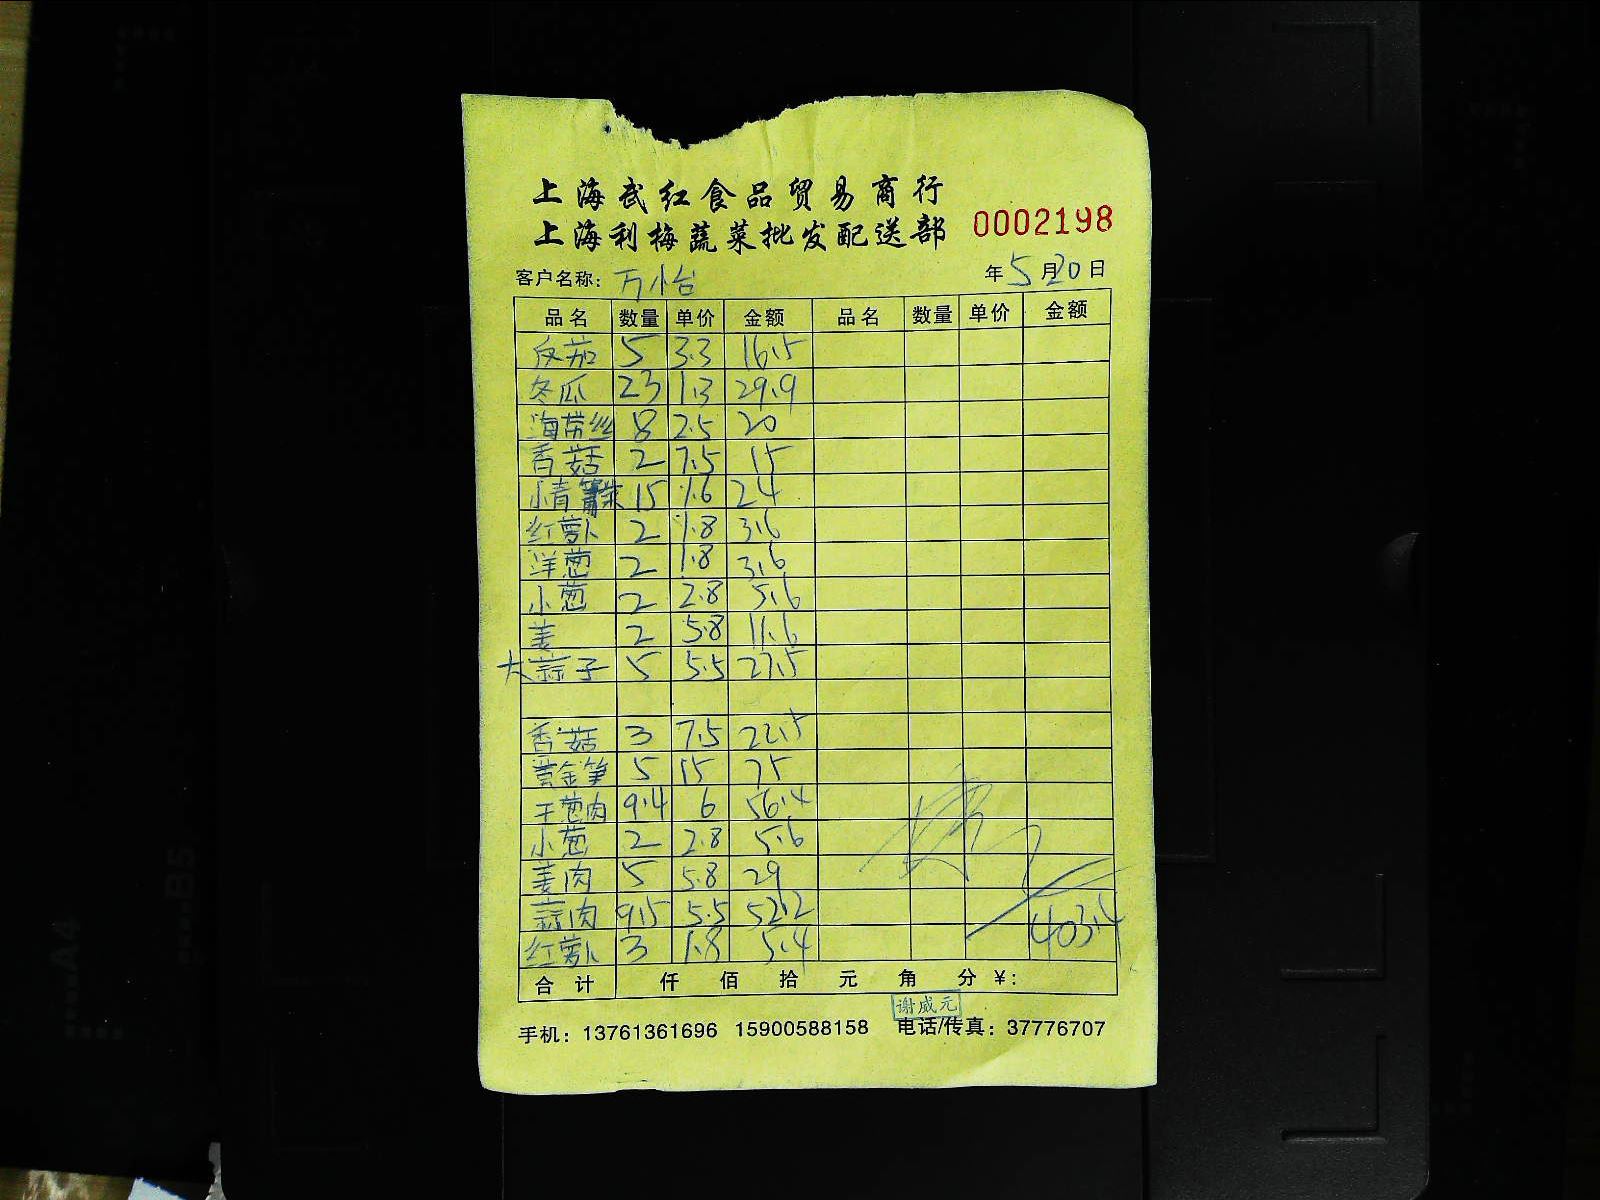 上海武红食品贸易商行
上海利梅蔬菜批发配送部 0002198
客户名称: 万怡 年 5 月 20 日
品名 数量 单价 金额 品名 数量 单价 金额
反茄 5 3.3 16.5
冬瓜 23 1.3 29.9
海带丝 8 2.5 20
香菇 2 7.5 15
小青 15 1.6 24
红萝卜 2 1.8 3.6
洋葱 2 1.8 3.6
小葱 2 2.8 5.6
姜 2 5.8 11.6
大蒜子 5 5.5 27.5
香菇 3 7.5 22.5
黄金笋 5 15 75
干葱肉 9.4 6 56.4
小葱 2 2.8 5.6
姜肉 5 5.8 29
蒜肉 9.5 5.5 52.2
红萝卜 3 1.8 5.4 403.4
合计 仟 佰 拾 元 角 分 ¥:
谢威元
手机: 13761361696 15900588158 电话/传真: 37776707